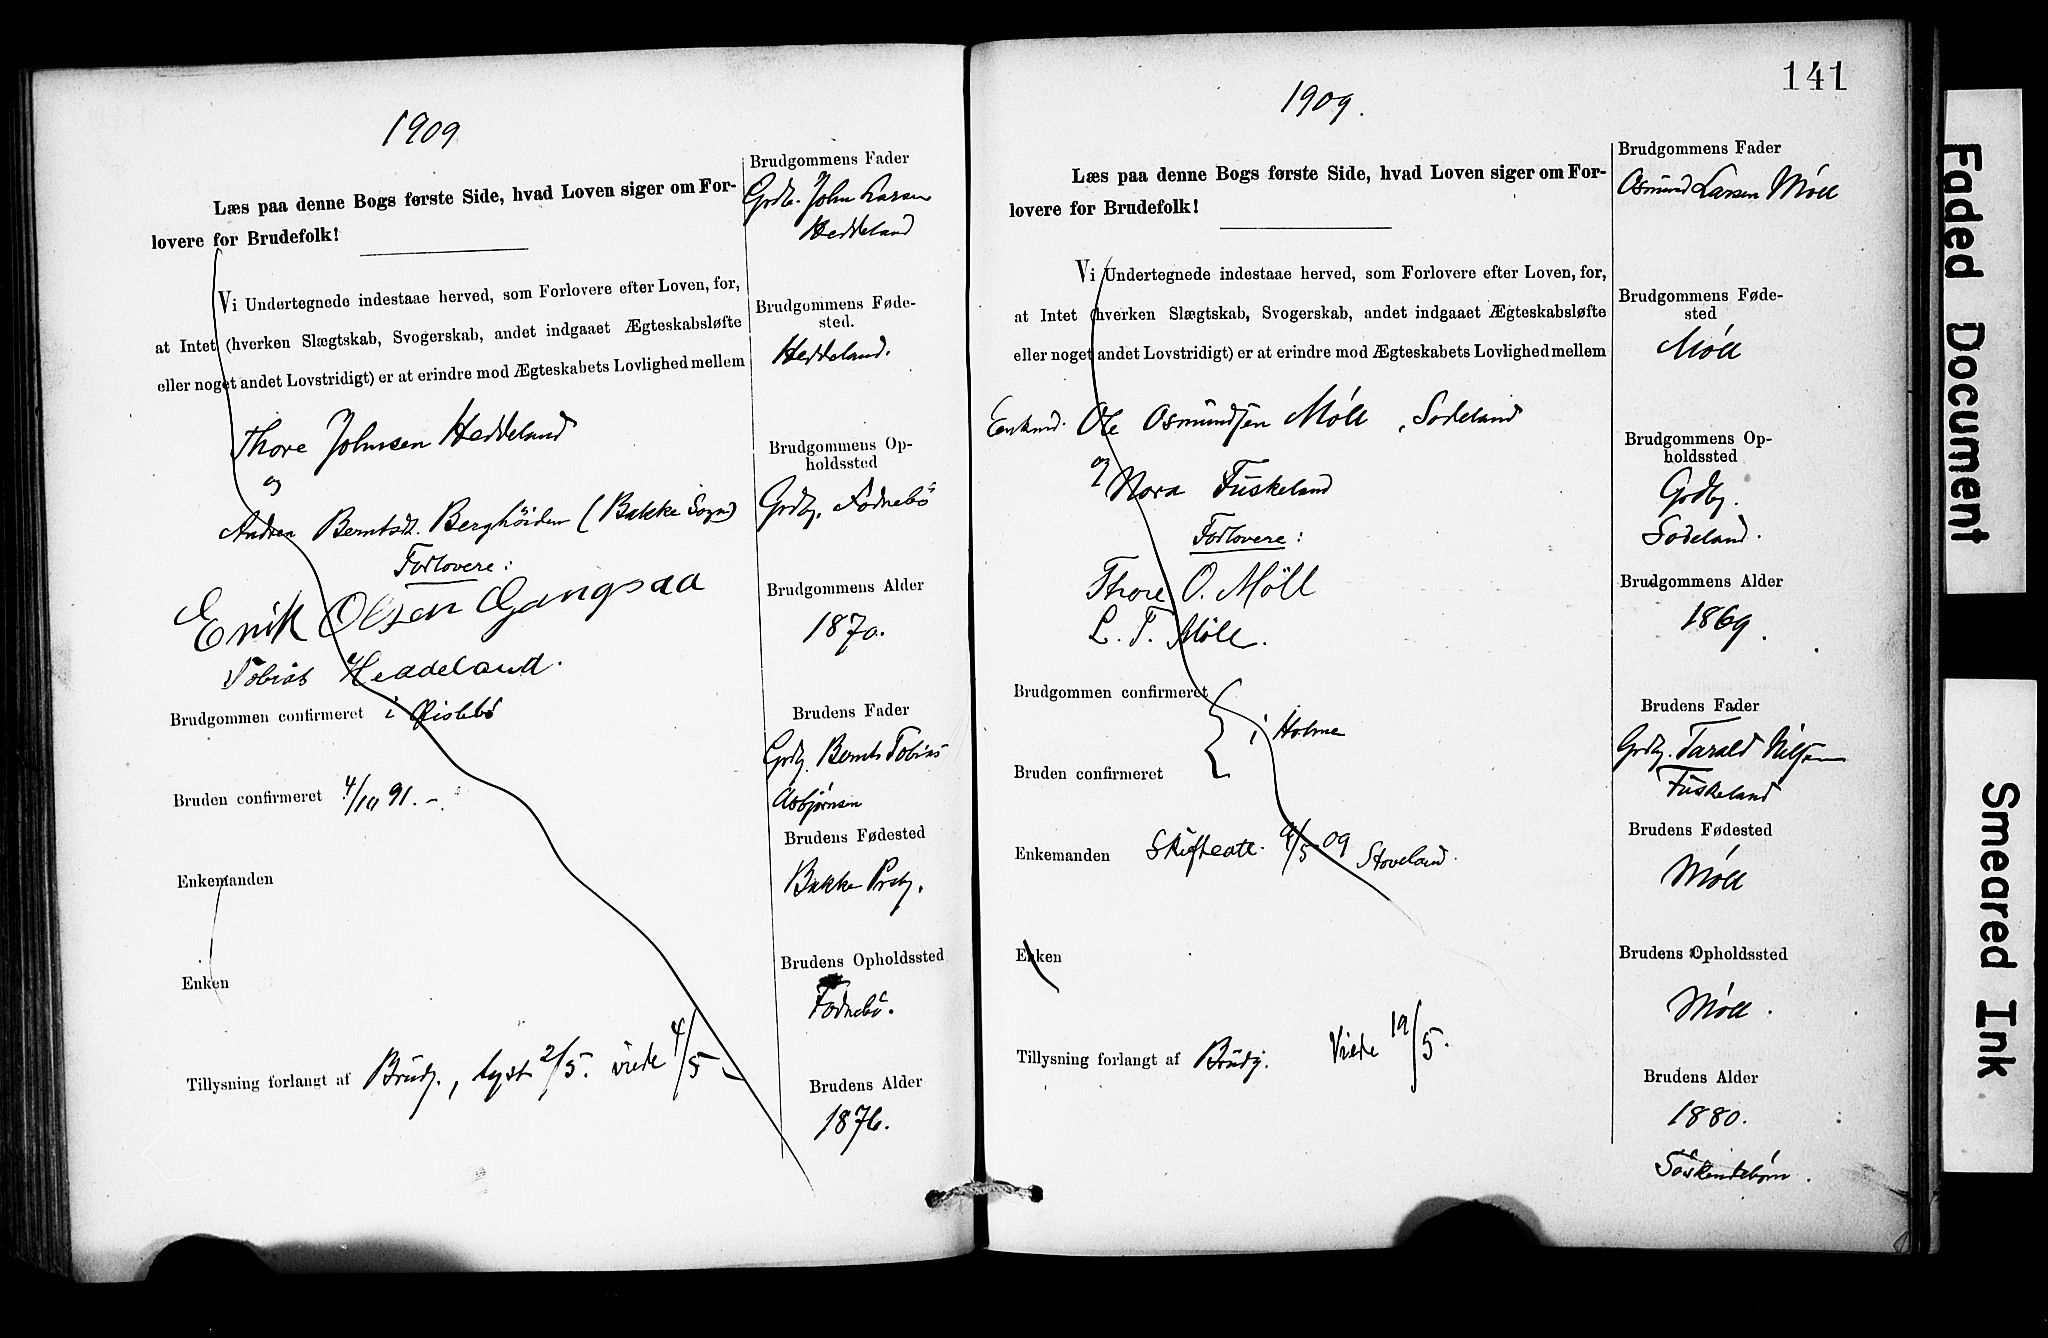 1909
Læs paa denne Bogs første Side, hvad Loven siger om For-
lovere for Brudefolk!
Vi Undertegnede indestaae herved, som Forlovere efter Loven, for,
at Intet (hverken Slægtskab, Svogerskab, andet indgaaet Ægteskabsløfte
eller noget andet Lovstridigt) er at erindre mod Ægteskabets Lovlighed mellem
Thore Johnsen Heddeland
og
Andrea Berntsdt. Berghöiden (Bakke Sogn)
Forlovere:
Erik Olsen Gangsaa
Tobias Heddeland.
Brudgommen confirmeret i Øislebö
Bruden confirmeret 4/10 91. -
Enkemanden
Enken
Tillysning forlangt af Brudg., lyst 2/5. viede 4/5 -
Brudgommens Fader
Grdb. John Larsen
Heddeland
Brudgommens Føde-
sted.
Heddeland.
Brudgommens Op-
holdssted
Grdbg. Fodnebö
Brudgommens Alder
1870.
Brudens Fader
Grdbg. Bernt Tobias
Asbjørnsen
Brudens Fødested
Bakke Prstg.
Brudens Opholdssted
Fodnebö.
Brudens Alder
1876.
141
1909.
Læs paa denne Bogs første Side, hvad Loven siger om For-
lovere for Brudefolk!
Vi Undertegnede indestaae herved, som Forlovere efter Loven, for,
at Intet (hverken Slægtskab, Svogerskab, andet indgaaet Ægteskabsløfte
eller noget andet Lovstridigt) er at erindre mod Ægteskabets Lovlighed mellem
Enkmd. Ole Osmundsen Möll, Sodeland
og Nora Fuskeland
Forlovere:
Thore O. Möll
L. T. Möll.
Brudgommen confirmeret
i Holme
Bruden confirmeret
Enkemanden Skifteatt. 9/5 09 Stoveland.
Enken
Tillysning forlangt af Brudg. Viede 19/5.
Brudgommens Fader
Osmund Larsen Möll
Brudgommens Føde-
sted
Möll
Brudgommens Op-
holdssted
Grdbg.
Sodeland.
Brudgommens Alder
1869.
Brudens Fader
Grdbg. Tarald Nilsen
Fuskeland
Brudens Fødested
Möll
Brudens Opholdssted
Möll.
Brudens Alder
1880.
Söskendebørn.
Faded Document
Smeared Ink